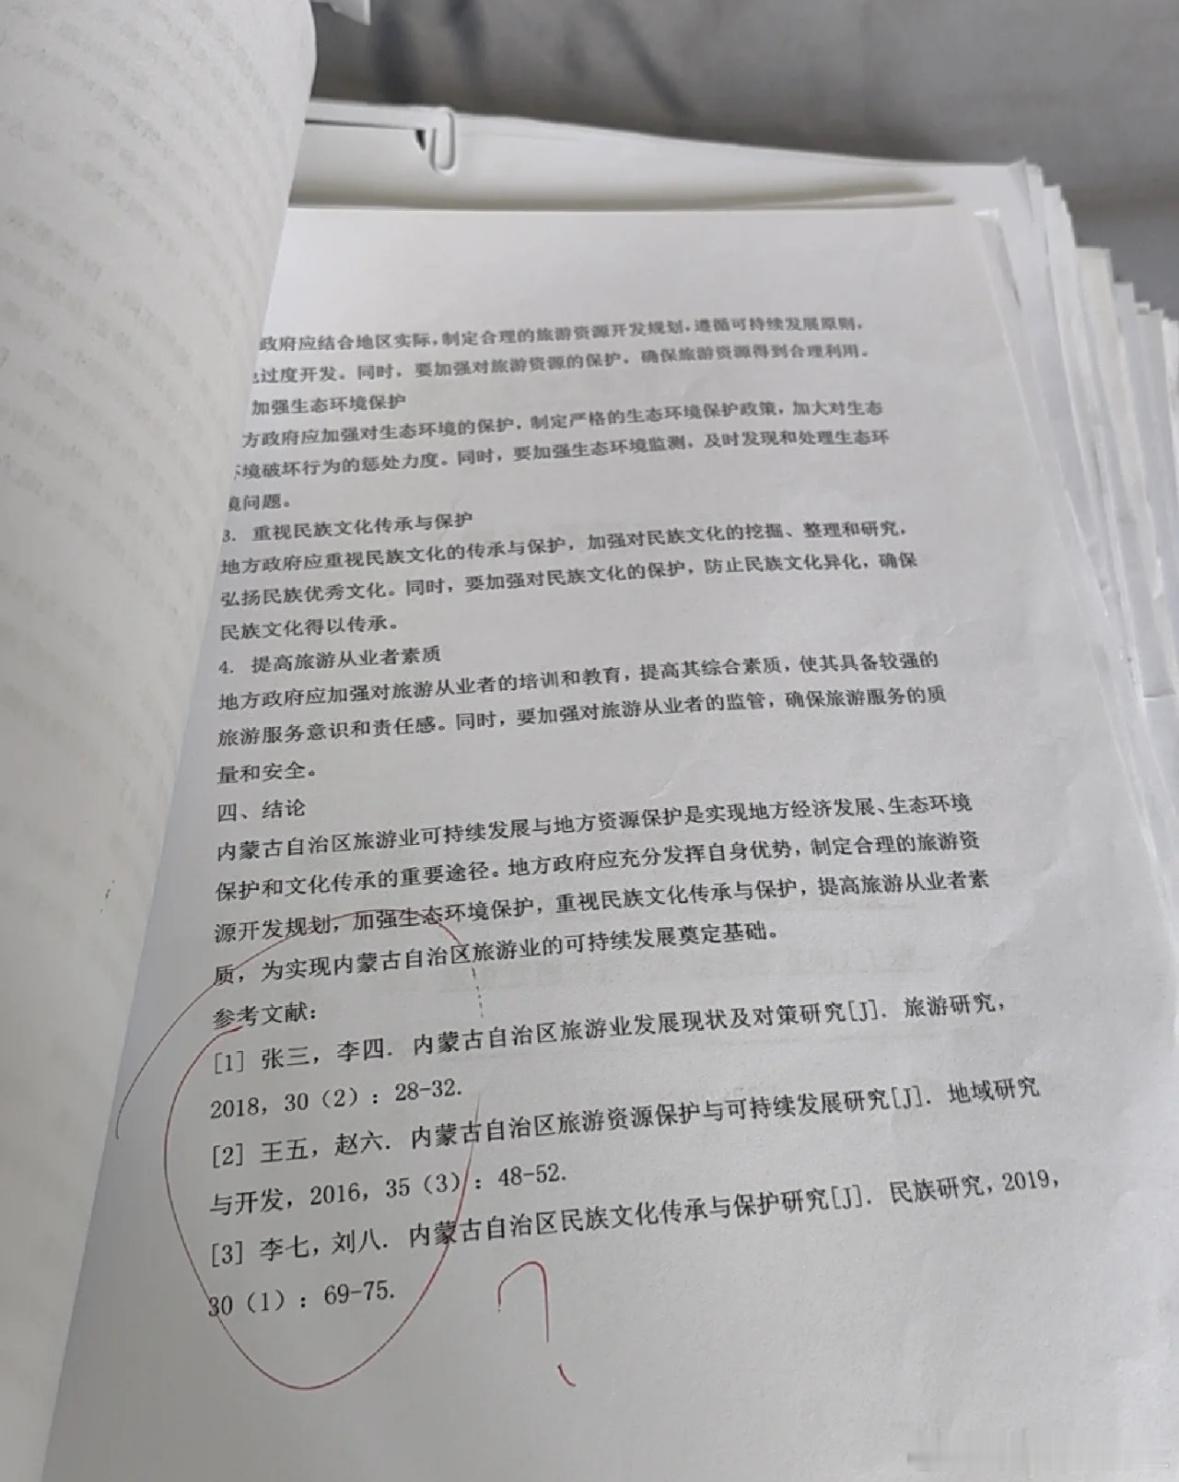 政府应结合地区实际，制定合理的旅游资源开发规划，遵循可持续发展原则，
过度开发。同时，要加强对旅游资源的保护，确保旅游资源得到合理利用。
加强生态环境保护
方政府应加强对生态环境的保护，制定严格的生态环境保护政策，加大对生态
环境破坏行为的惩处力度。同时，要加强生态环境监测，及时发现和处理生态环
境问题。
3. 重视民族文化传承与保护
地方政府应重视民族文化的传承与保护，加强对民族文化的挖掘、整理和研究，
弘扬民族优秀文化。同时，要加强对民族文化的保护，防止民族文化异化，确保
民族文化得以传承。
4. 提高旅游从业者素质
地方政府应加强对旅游从业者的培训和教育，提高其综合素质，使其具备较强的
旅游服务意识和责任感。同时，要加强对旅游从业者的监管，确保旅游服务的质
量和安全。
四、结论
内蒙古自治区旅游业可持续发展与地方资源保护是实现地方经济发展、生态环境
保护和文化传承的重要途径。地方政府应充分发挥自身优势，制定合理的旅游资
源开发规划，加强生态环境保护，重视民族文化传承与保护，提高旅游从业者素
质，为实现内蒙古自治区旅游业的可持续发展奠定基础。
参考文献：
[1] 张三，李四. 内蒙古自治区旅游业发展现状及对策研究[J]. 旅游研究，
2018，30（2）：28-32.
[2] 王五，赵六. 内蒙古自治区旅游资源保护与可持续发展研究[J]. 地域研究
与开发，2016，35（3）：48-52.
[3] 李七，刘八. 内蒙古自治区民族文化传承与保护研究[J]. 民族研究，2019，
30（1）：69-75.
?